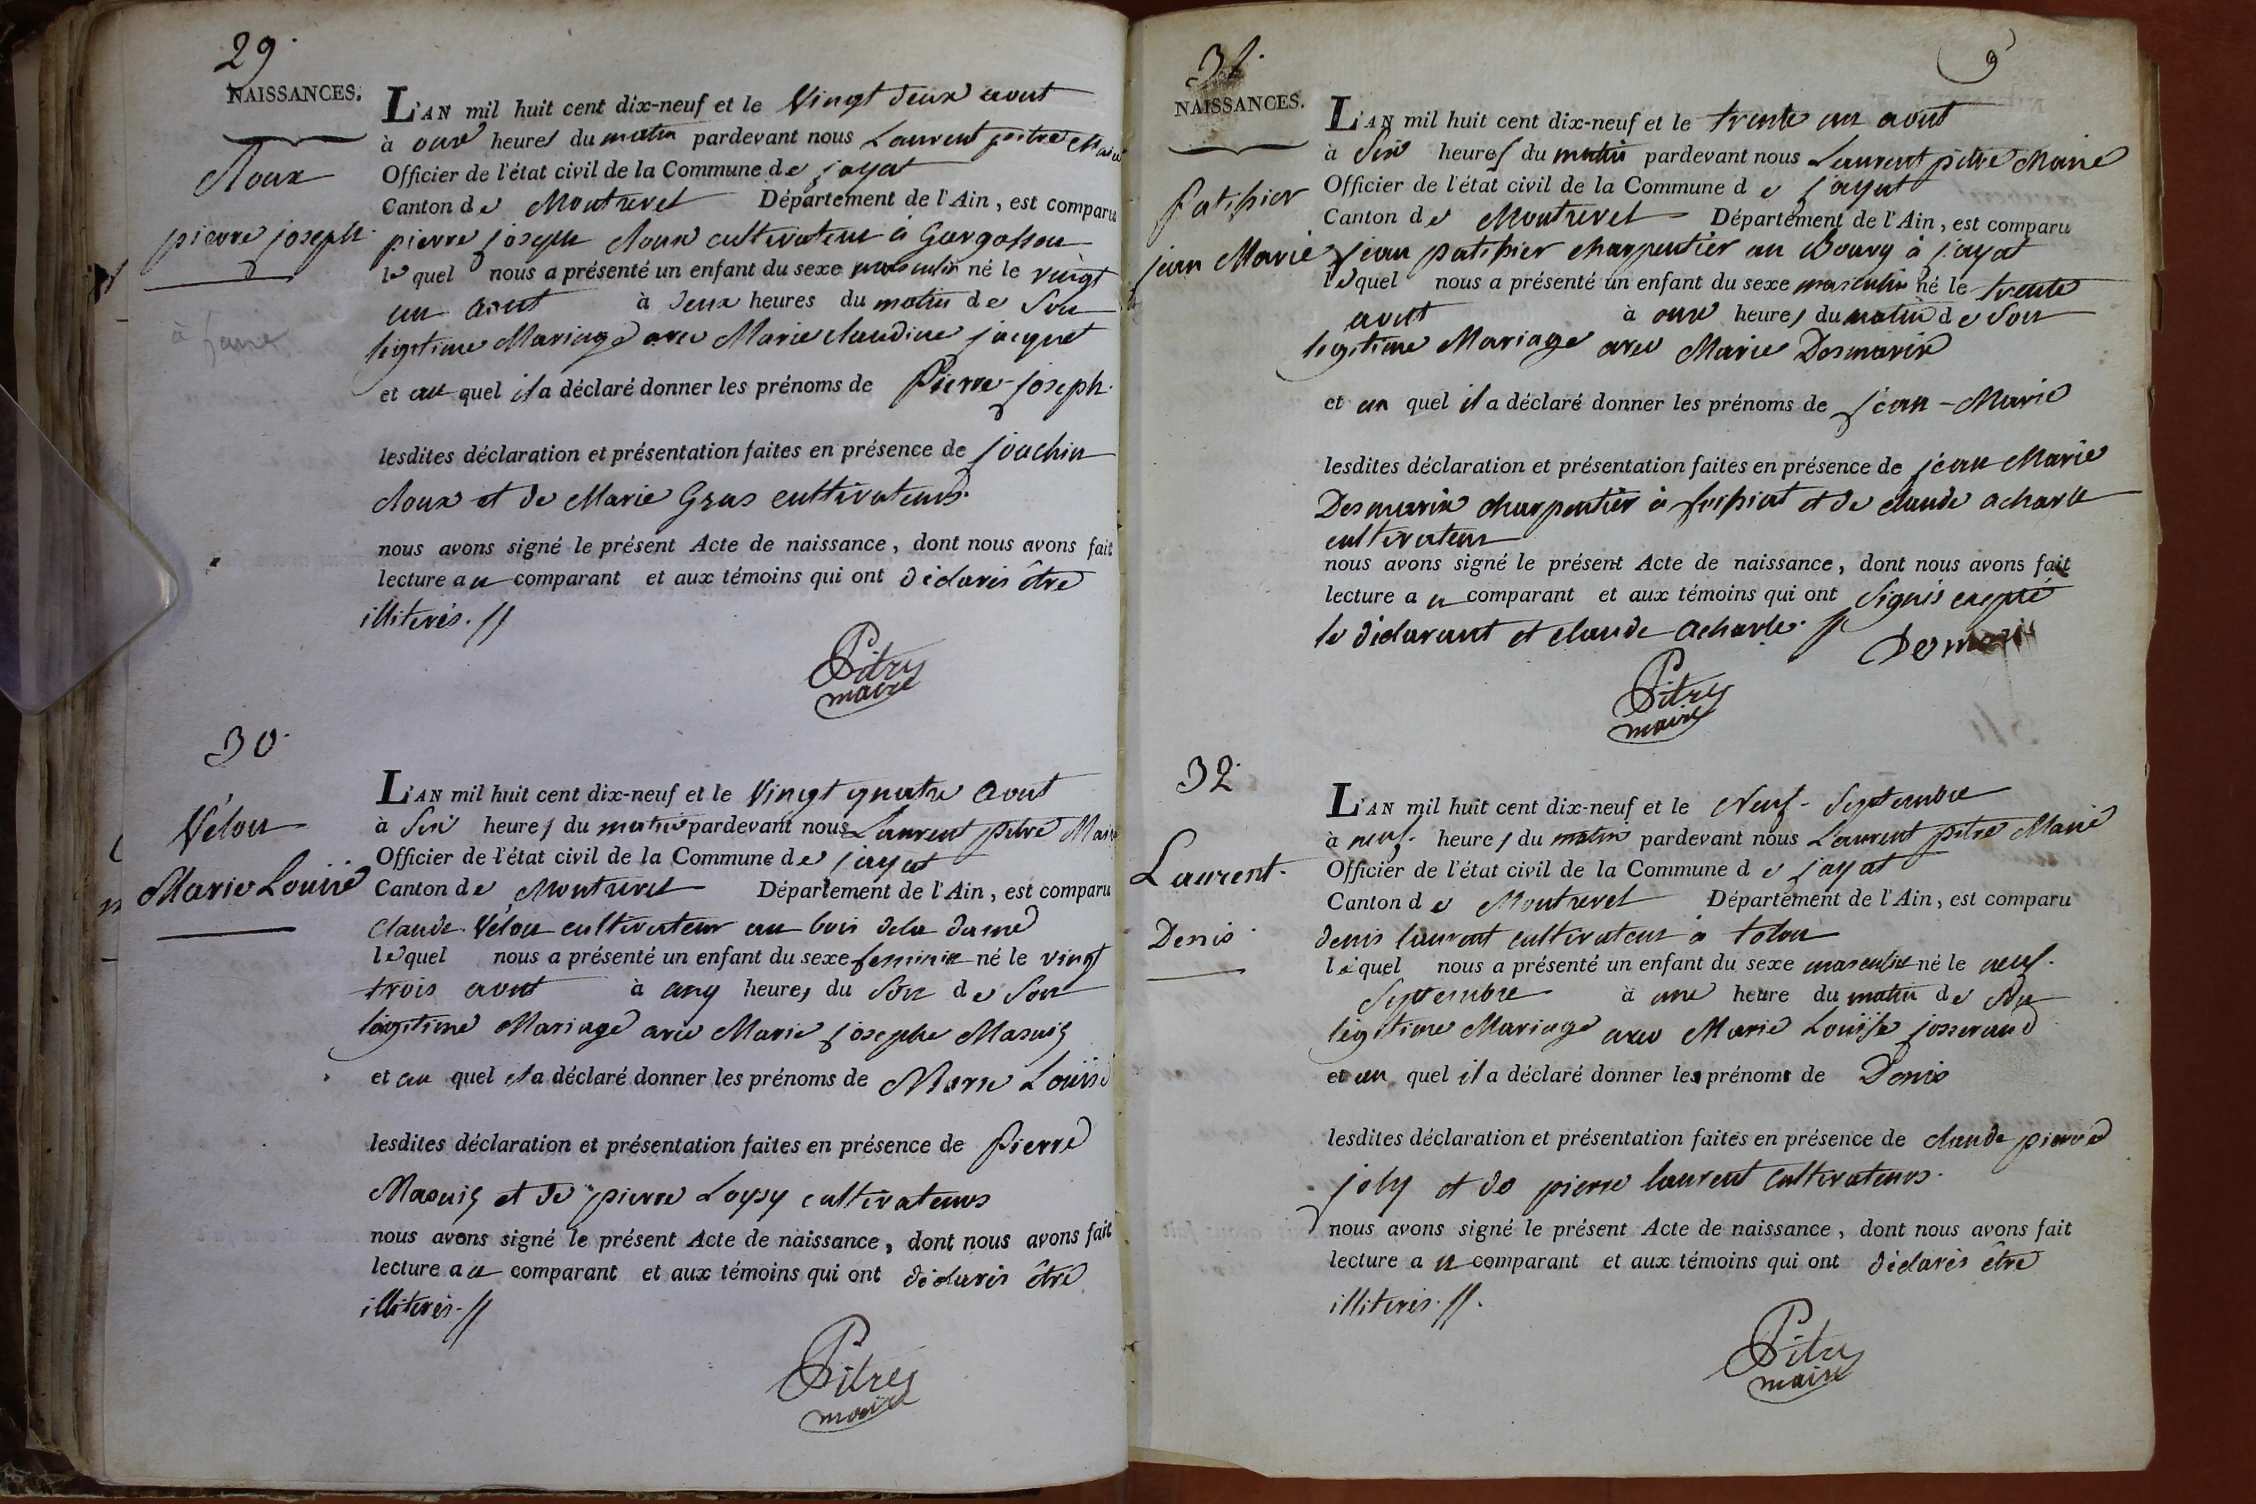 29.
NAISSANCES.
Cloux
pierre joseph.
à faire
L'AN mil huit cent dix-neuf et le Vingt deux aout
à onze heures du matin pardevant nous Laurent pitre Maire
Officier de l'état civil de la Commune de jayat
Canton de Montrevel Département de l'Ain, est comparu
pierre joseph cloux cultivateur à Gargosson
le quel nous a présenté un enfant du sexe masculin né le vingt
un aout à deux heures du matin de Son
legitime Mariage avec Marie claudine jacquet
et au quel il a déclaré donner les prénoms de Pierre-joseph.
lesdites déclaration et présentation faites en présence de joachin
cloux et de Marie Gras cultivateurs.
nous avons signé le présent Acte de naissance, dont nous avons fait
lecture au comparant et aux témoins qui ont déclarés être
illiterés. //
Pitre
maire
30.
Vélon
Marie Louise
L'AN mil huit cent dix-neuf et le Vingt quatre Aout
à Six heures du matin pardevant nous Laurent pitre Maire
Officier de l'état civil de la Commune de jayat
Canton de Montrevel Département de l'Ain, est comparu
Claude Vélon cultivateur au bois dela dame
lequel nous a présenté un enfant du sexe feminin né le vingt
trois aout à cinq heures du Soir de Son
légitime Mariage avec Marie josephe Masuiz
et au quel il a déclaré donner les prénoms de Marie Louise
lesdites déclaration et présentation faites en présence de Pierre
Masuiz et de pierre Loysy cultivateurs
nous avons signé le présent Acte de naissance, dont nous avons fait
lecture au comparant et aux témoins qui ont déclarés être
illiterés. //
Pitre
maire
9
31.
NAISSANCES.
patissier
jean Marie
L'AN mil huit cent dix-neuf et le trente un aout
à Six heures du matin pardevant nous Laurent pitre Maire
Officier de l'état civil de la Commune de jayat
Canton de Montrevel Département de l'Ain, est comparu
jean patissier charpentier au Bourg à jayat
lequel nous a présenté un enfant du sexe masculin né le trente
aout à onze heures du matin de Son
legitime Mariage avec Marie Desmaris
et au quel il a déclaré donner les prénoms de jean-Marie
lesdites déclaration et présentation faites en présence de jean Marie
Desmaris charpentier à foissiat et de claude acharle
cultivateur
nous avons signé le présent Acte de naissance, dont nous avons fait
lecture au comparant et aux témoins qui ont Signés excepté
le déclarant et claude acharle. //
Demaris
Pitre
maire
32.
Laurent.
Denis.
L'AN mil huit cent dix-neuf et le Neuf Septembre
à neuf heures du matin pardevant nous Laurent pitre Maire
Officier de l'état civil de la Commune de jayat
Canton de Montrevel Département de l'Ain, est comparu
denis laurent cultivateur à tolon
lequel nous a présenté un enfant du sexe masculin né le neuf
Septembre à une heure du matin de Son
légitime Mariage avec Marie Louise josserand
et au quel il a déclaré donner les prénoms de Denis
lesdites déclaration et présentation faites en présence de claude pierre
joly et de pierre laurent Cultivateurs.
nous avons signé le présent Acte de naissance, dont nous avons fait
lecture au comparant et aux témoins qui ont déclarés être
illiterés. //.
Pitre
maire